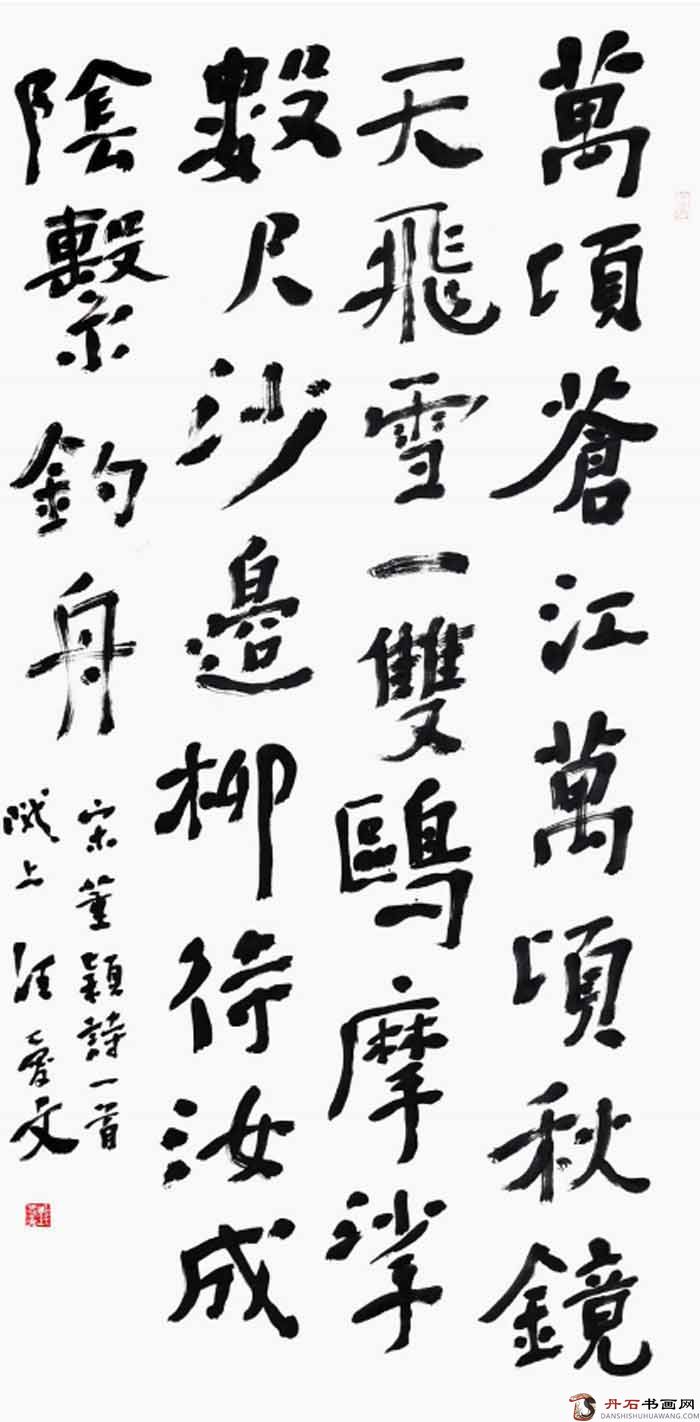 萬頃蒼江萬頃秋鏡
天飛雪一雙鷗摩挲
數尺沙邊柳待汝成
陰繫釣舟
宋董穎詩一首
陇上汪愛文
丹石书画网
DANSHISHUHUAWANG.COM